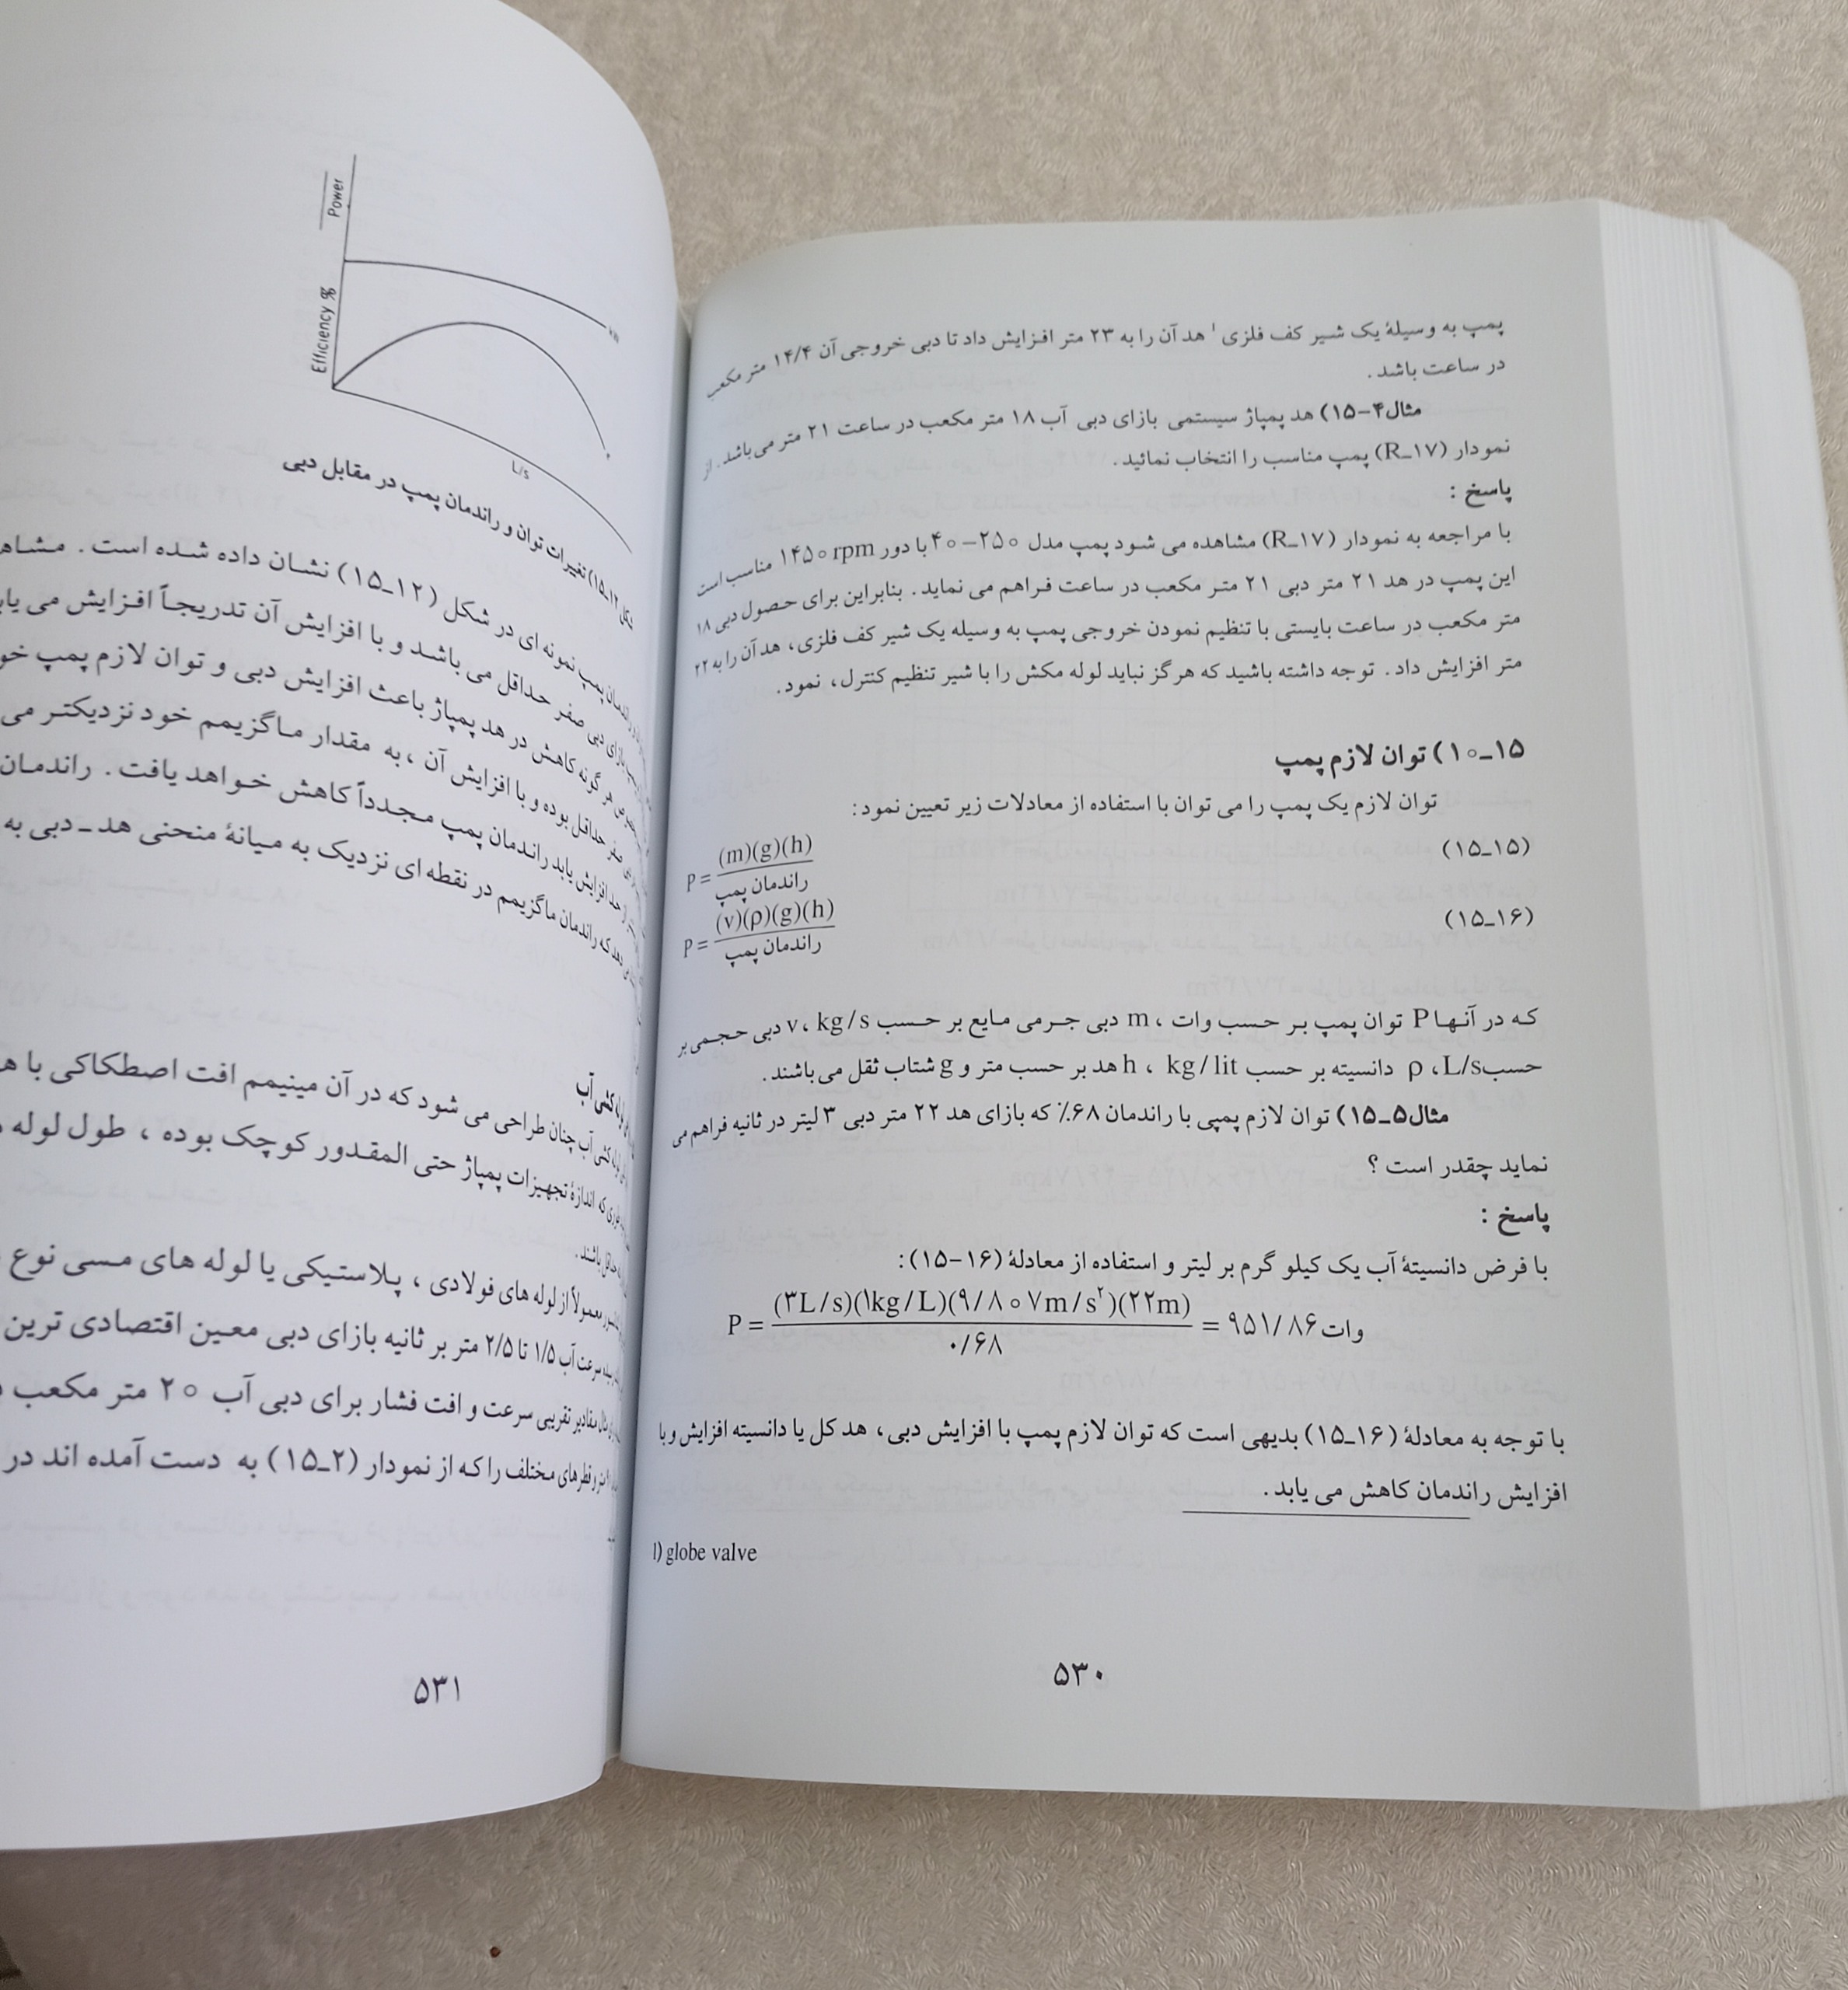 پمپ به وسیلهٔ یک شیر کف فلزی ۱ هد آن را به ۲۳ متر افزایش داد تا دبی خروجی آن ۱۴/۴ متر مکعب
در ساعت باشد .
مثال۴-۱۵) هد پمپاژ سیستمی بازای دبی آب ۱۸ متر مکعب در ساعت ۲۱ متر می باشد . از
نمودار (R_۱۷) پمپ مناسب را انتخاب نمائید .
پاسخ :
با مراجعه به نمودار (R_۱۷) مشاهده می شود پمپ مدل ۲۵۰-۴۰ با دور ۱۴۵۰ rpm مناسب است
این پمپ در هد ۲۱ متر دبی ۲۱ متر مکعب در ساعت فراهم می نماید . بنابراین برای حصول دبی ۱۸
متر مکعب در ساعت بایستی با تنظیم نمودن خروجی پمپ به وسیله یک شیر کف فلزی، هد آن را به ۲۲
متر افزایش داد . توجه داشته باشید که هرگز نباید لوله مکش را با شیر تنظیم کنترل، نمود .
۱۵_۱۰) توان لازم پمپ
توان لازم یک پمپ را می توان با استفاده از معادلات زیر تعیین نمود :
(۱۵_۱۵) P = (m)(g)(h) / راندمان پمپ
(۱۵_۱۶) P = (v)(ρ)(g)(h) / راندمان پمپ
که در آنها P توان پمپ بر حسب وات ، m دبی جرمی مایع بر حسب kg/s ، v دبی حجمی بر
حسب L/s، ρ دانسیته بر حسب kg/lit ، h هد بر حسب متر و g شتاب ثقل می باشند .
مثال۵_۱۵) توان لازم پمپی با راندمان ۶۸٪ که بازای هد ۲۲ متر دبی ۳ لیتر در ثانیه فراهم می
نماید چقدر است ؟
پاسخ :
با فرض دانسیتهٔ آب یک کیلو گرم بر لیتر و استفاده از معادلهٔ (۱۶-۱۵) :
P = (۳L/s)(۱kg/L)(۹/۸۰۷m/s۲)(۲۲m) / ۰/۶۸ = ۹۵۱/۸۶ وات
با توجه به معادلهٔ (۱۶_۱۵) بدیهی است که توان لازم پمپ با افزایش دبی، هد کل یا دانسیته افزایش و با
افزایش راندمان کاهش می یابد .
۱) globe valve
۵۳۰
Power
Efficiency %
L/s
۱۲_۱۵) تغییرات توان و راندمان پمپ در مقابل دبی
راندمان پمپ نمونه ای در شکل (۱۲_۱۵) نشان داده شده است .
بازای دبی صفر حداقل می باشد و با افزایش آن تدریجاً افزایش می
هر گونه کاهش در هد پمپاژ باعث افزایش دبی و توان لازم پمپ
صفر حداقل بوده و با افزایش آن ، به مقدار ماگزیمم خود نزدیکتر می
حد افزایش یابد راندمان پمپ مجدداً کاهش خواهد یافت . راندمان
دهد که راندمان ماگزیمم در نقطه ای نزدیک به میانهٔ منحنی هد _ دبی به
لوله کشی آب
لوله کشی آب چنان طراحی می شود که در آن مینیمم افت اصطکاکی با
که اندازهٔ تجهیزات پمپاژ حتی المقدور کوچک بوده ، طول لوله
حداقل باشند .
معمولاً از لوله های فولادی ، پلاستیکی یا لوله های مسی نوع
سرعت آب ۱/۵ تا ۲/۵ متر بر ثانیه بازای دبی معین اقتصادی ترین
مثال مقادیر تقریبی سرعت و افت فشار برای دبی آب ۲۰ متر مکعب
قطرهای مختلف را که از نمودار (۲_۱۵) به دست آمده اند در
۵۳۱